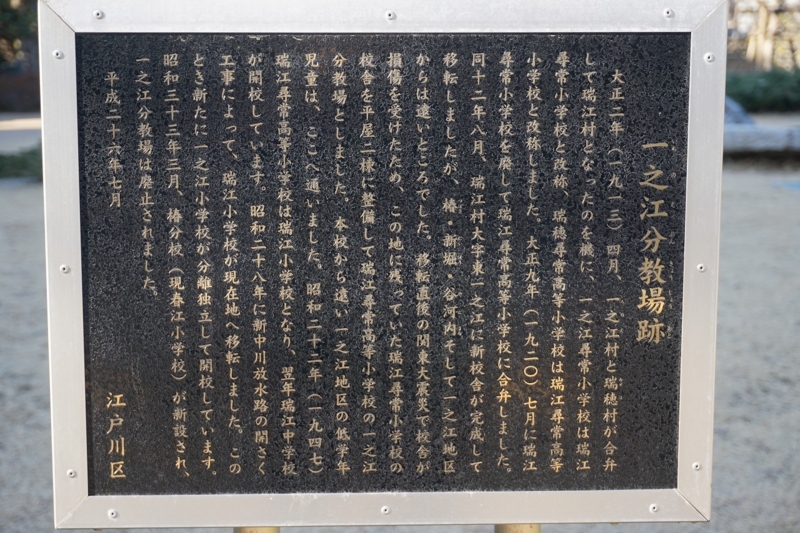 一之江分教場跡
大正二年（一九一三）四月、一之江村と瑞穂村が合弁
して瑞江村となったのを機に、一之江尋常小学校は瑞江
尋常小学校と改称、瑞穂尋常高等小学校は瑞江尋常高等
小学校と改称しました。大正九年（一九二〇）七月に瑞江
尋常小学校を廃して瑞江尋常高等小学校に合弁しました。
同十二年八月、瑞江村大字東一之江に新校舎が完成して
移転しましたが、椿・新堀・谷河内そして一之江地区
からは遠いところでした。移転直後の関東大震災で校舎が
損傷を受けたため、この地に残っていた瑞江尋常小学校の
校舎を平屋二棟に整備して瑞江尋常高等小学校の一之江
分教場としました。本校から遠い一之江地区の低学年
児童は、ここへ通いました。昭和二十二年（一九四七）
瑞江尋常高等小学校は瑞江小学校となり、翌年瑞江中学校
が開校しています。昭和二十八年に新中川放水路の開さく
工事によって、瑞江小学校が現在地へ移転しました。この
とき新たに一之江小学校が分離独立して開校しています。
昭和三十三年三月、椿分校（現春江小学校）が新設され、
一之江分教場は廃止されました。
平成二十六年七月
江戸川区